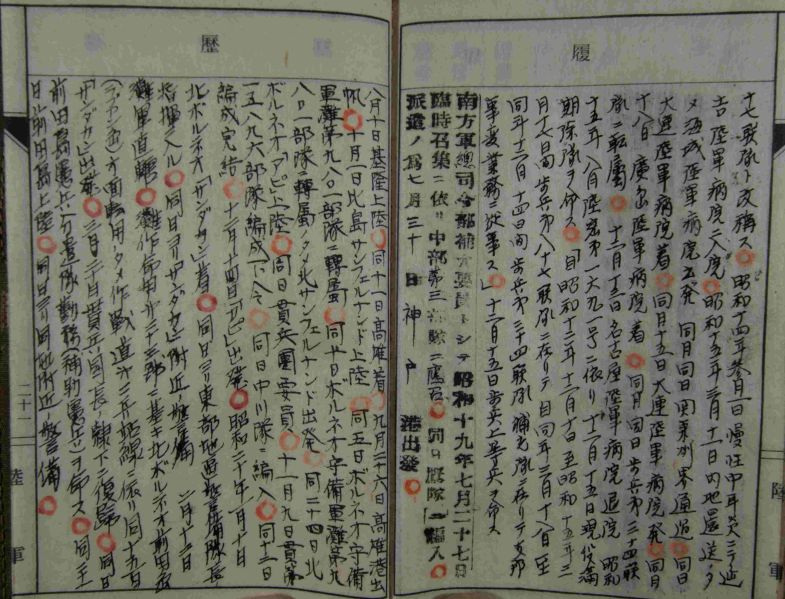 履
十七聯隊ト改稱ス 昭和十四年参月一日慢性中耳炎ニテ延
吉陸軍病院ニ入院 昭和十五年三月十日内地還送ノタ
メ海城陸軍病院出発 同月同日関東州界通過 同日
大連陸軍病院着 同月十五日大連陸軍病院発 同月
十八日廣島陸軍病院着 同月同日歩兵第三十四聯
隊ニ転属 十二月十三日名古屋陸軍病院退院 昭和
十五年八月陸密第一六九一号ニ依リ十二月十五日現役満
期除隊ヲ命ス 自昭和十三年十二月十日至昭和十五年三
月十七日間歩兵第八十七聯隊ニ在リテ自同年三月十八日至
同年十二月十四日間歩兵第三十四聯隊補充隊ニ在リテ支那
事変業務ニ従事ス 十二月十五日歩兵上等兵ヲ命ス
南方軍總司令部補充要員トシテ昭和十九年七月二十七日
臨時召集ニ依リ中部第三部隊ニ應召 同日 隊ニ編入
派遣ノ為七月三十日神戸港出發
陸軍
歴
八月十日基隆上陸 同十一日高雄着 九月二十六日高雄港出
帆 十月一日比島サンフェルナンド上陸 同五日ボルネオ守備
軍灘第九八〇一部隊ニ轉属 同十日ボルネオ守備軍灘第九
八〇一部隊ニ轉属ノタメ北サンフェルナンド出発 同二十四日北
ボルネオ「アピ」上陸 同日貫兵團要員 十一月九日貫第
一五八九六部隊編成下令 同日中川隊ニ編入 同十三日
編成完結 十二月十四日「アピ」出発 昭和二十年一月十日
北ボルネオ「サンダカン」着 同日ヨリ東部地区警備隊長ノ
指揮ニ入ル 同日ヨリ「サンダカン」附近ノ警備 二月十三日
灘軍直轄 灘作命甲第二十三號ニ基キ北ボルネオ前田島
(ラブアン島)方面転用ノタメ作戦道 ニ兵站線ニ依リ同十五日
「サンダカン」出発 三月二十日貫兵団長ノ隷下ニ復帰 同日
前田島憲兵分遣隊勤務(補助憲兵)ヲ命ス 同 
日前田島上陸 同日ヨリ同地附近ノ警備
二十一
陸軍